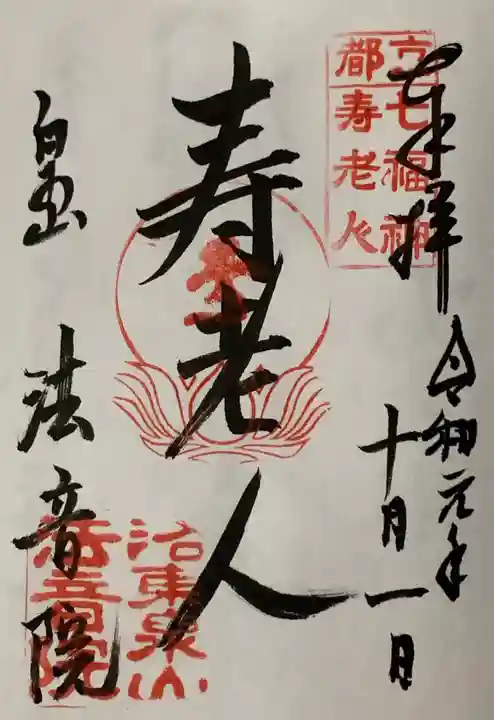 奉拝
令和元年
十月一日
京都
七福神
寿老人
寿老人
泉山 法音院
洛東泉山
法音院